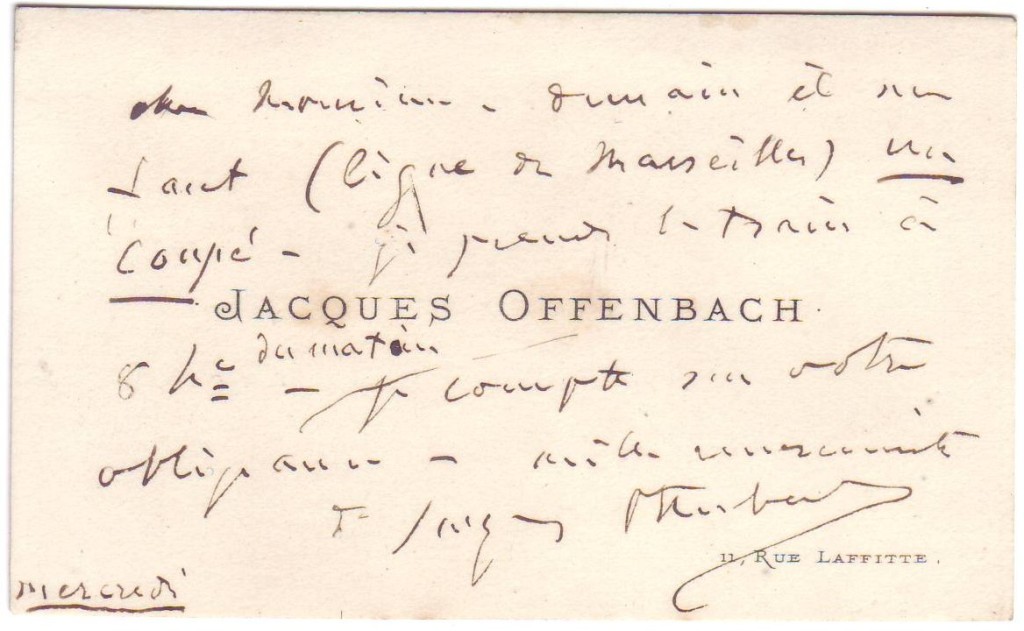 cher Monsieur - demain il me
faut (ligne de Marseille) un
coupé - je prends le train à
JACQUES OFFENBACH
8 h^es du matin - je compte sur votre
obligeance - mille remerciements
Jacques Offenbach
11, RUE LAFFITTE.
mercredi